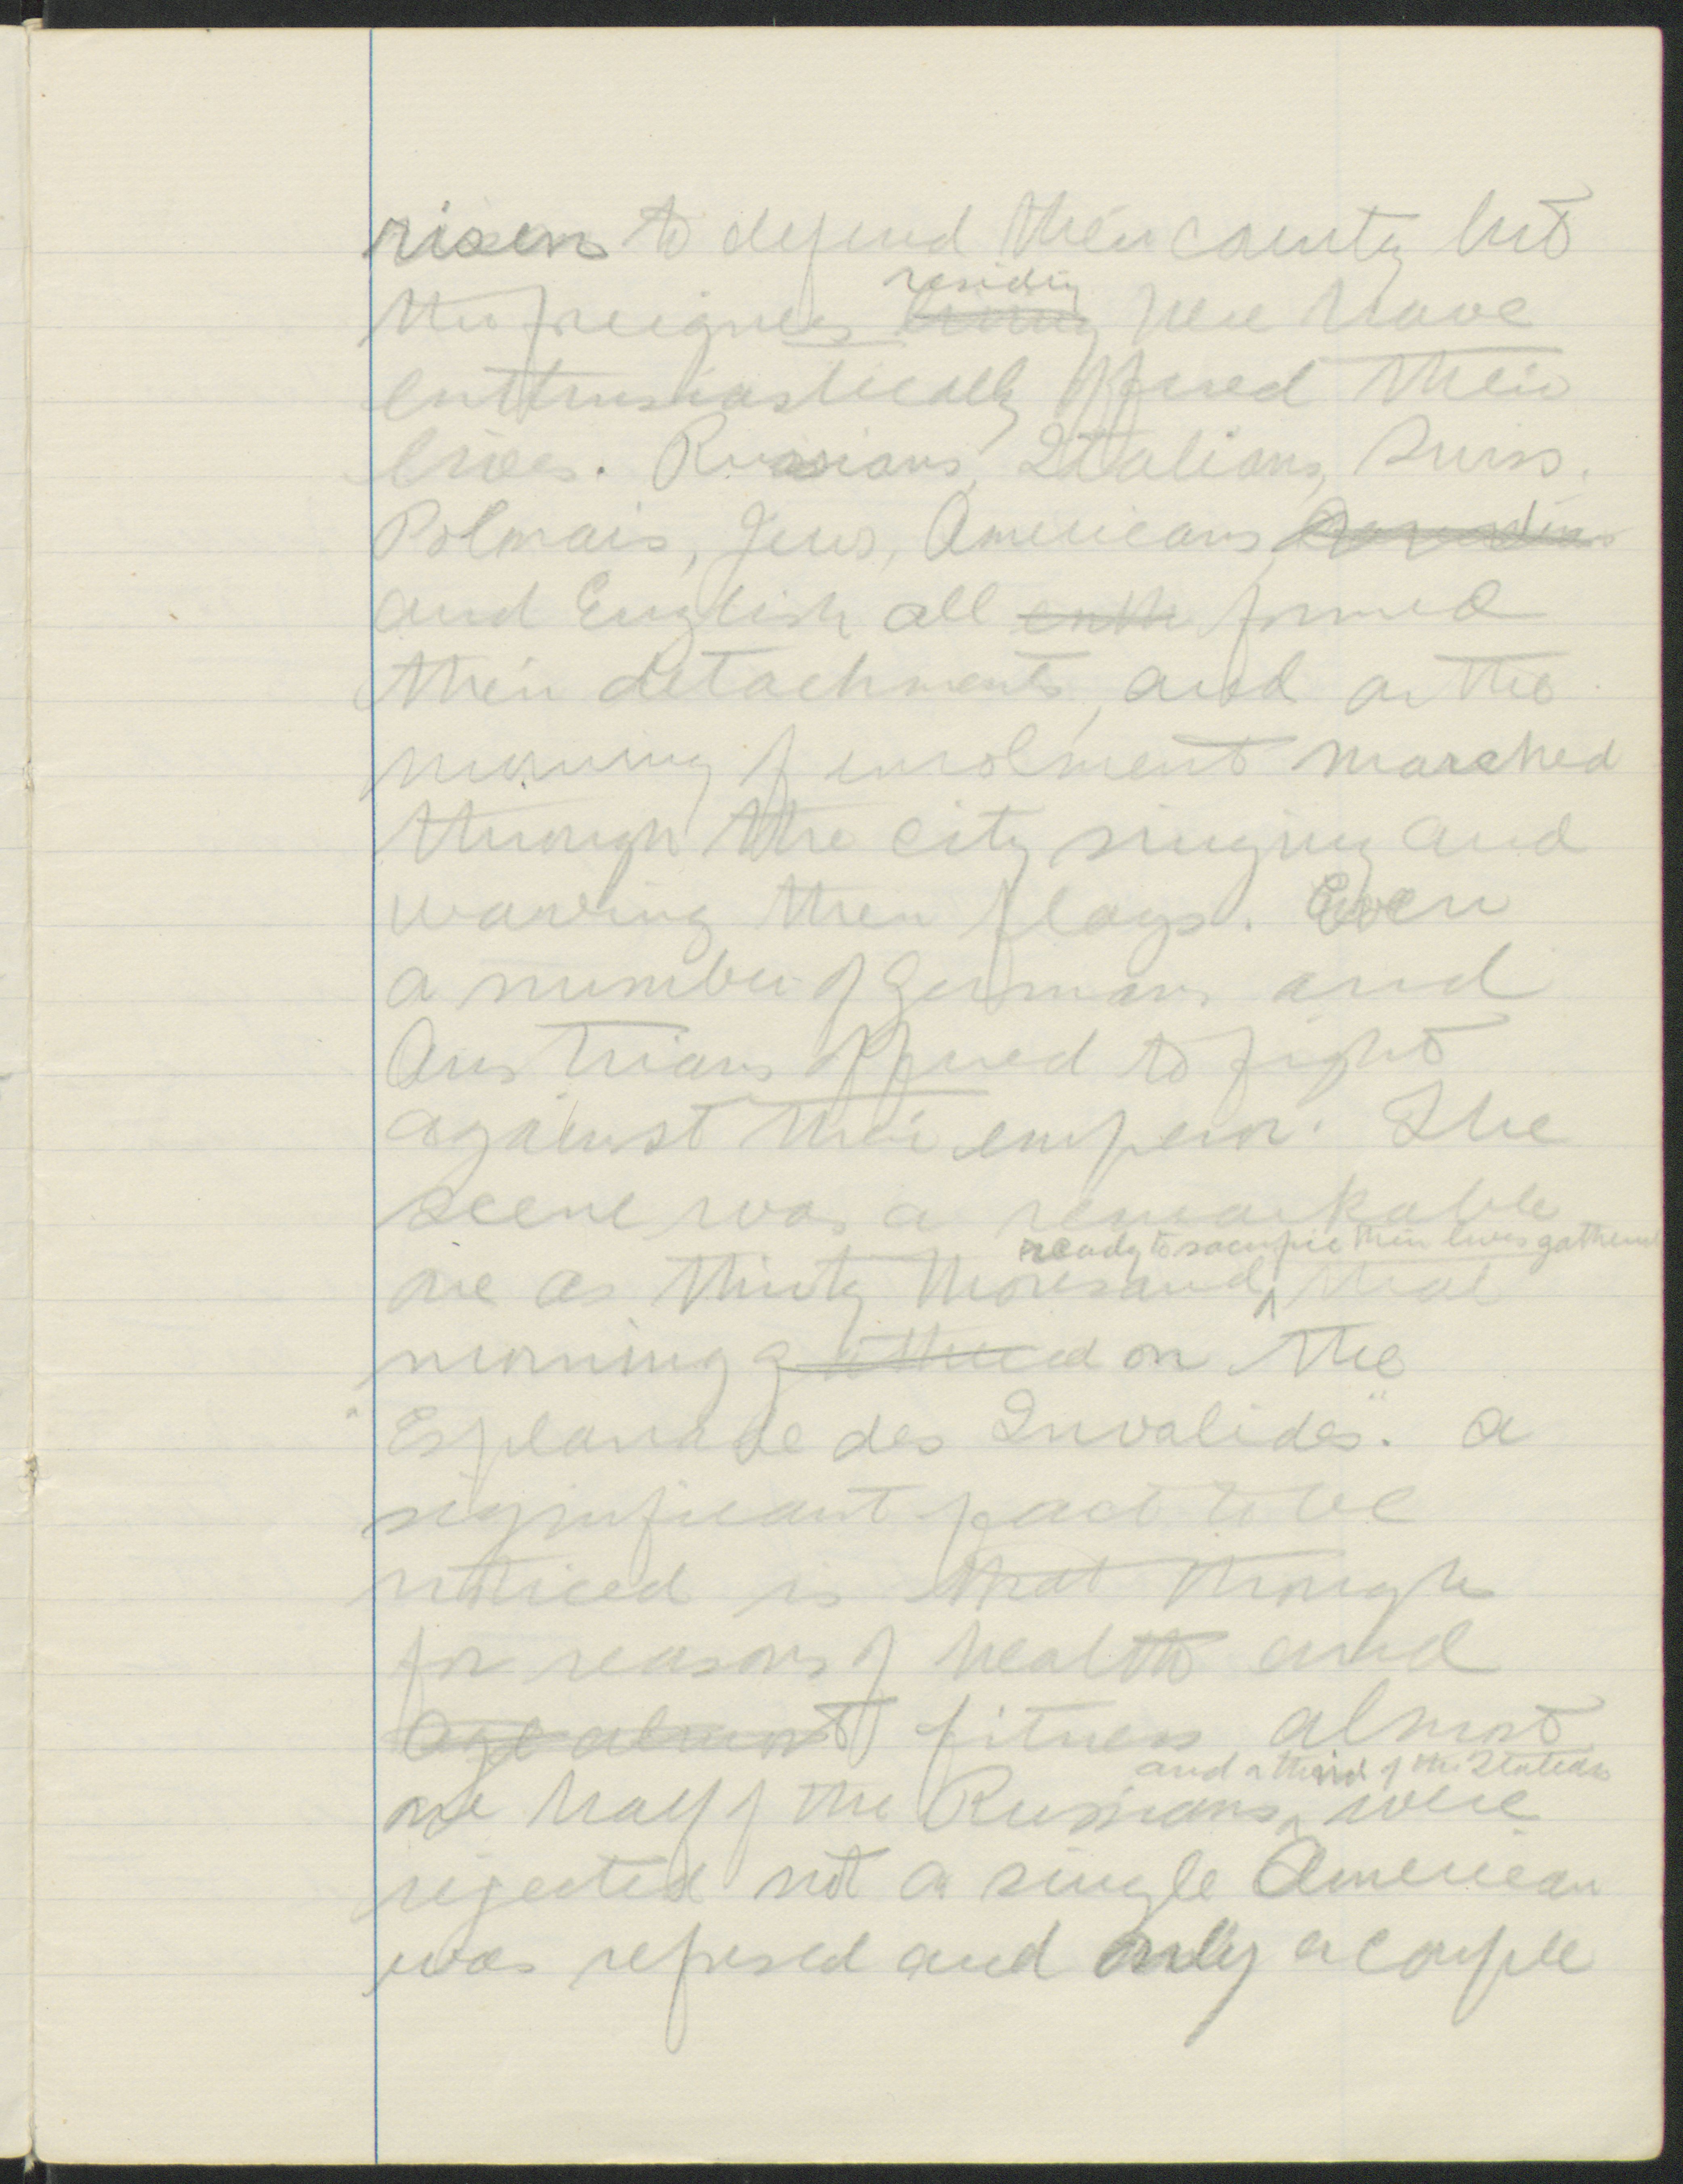 risen to defend their country but
residing
the foreigners living here have
enthusiastically offered their
lives. Russians, Italians, Swiss,
Polonais, Jews, Americans,
and English all enth formed
their detachments, and on the
morning of enrolment marched
through the city singing and
waving their flags. Even
a number of Germans and
Austrians offered to fight
against their emperor. The
scene was a remarkable
ready to sacrifice their lives gathered
one as thirty thousand, that
morning gathered on the
"Esplanade des Invalides". A
significant fact to be
noticed is that though
for reasons of health and
age almost fitness almost
and a third of the Italians
one half of the Russians were
rejected not a single American
was refused and only a couple